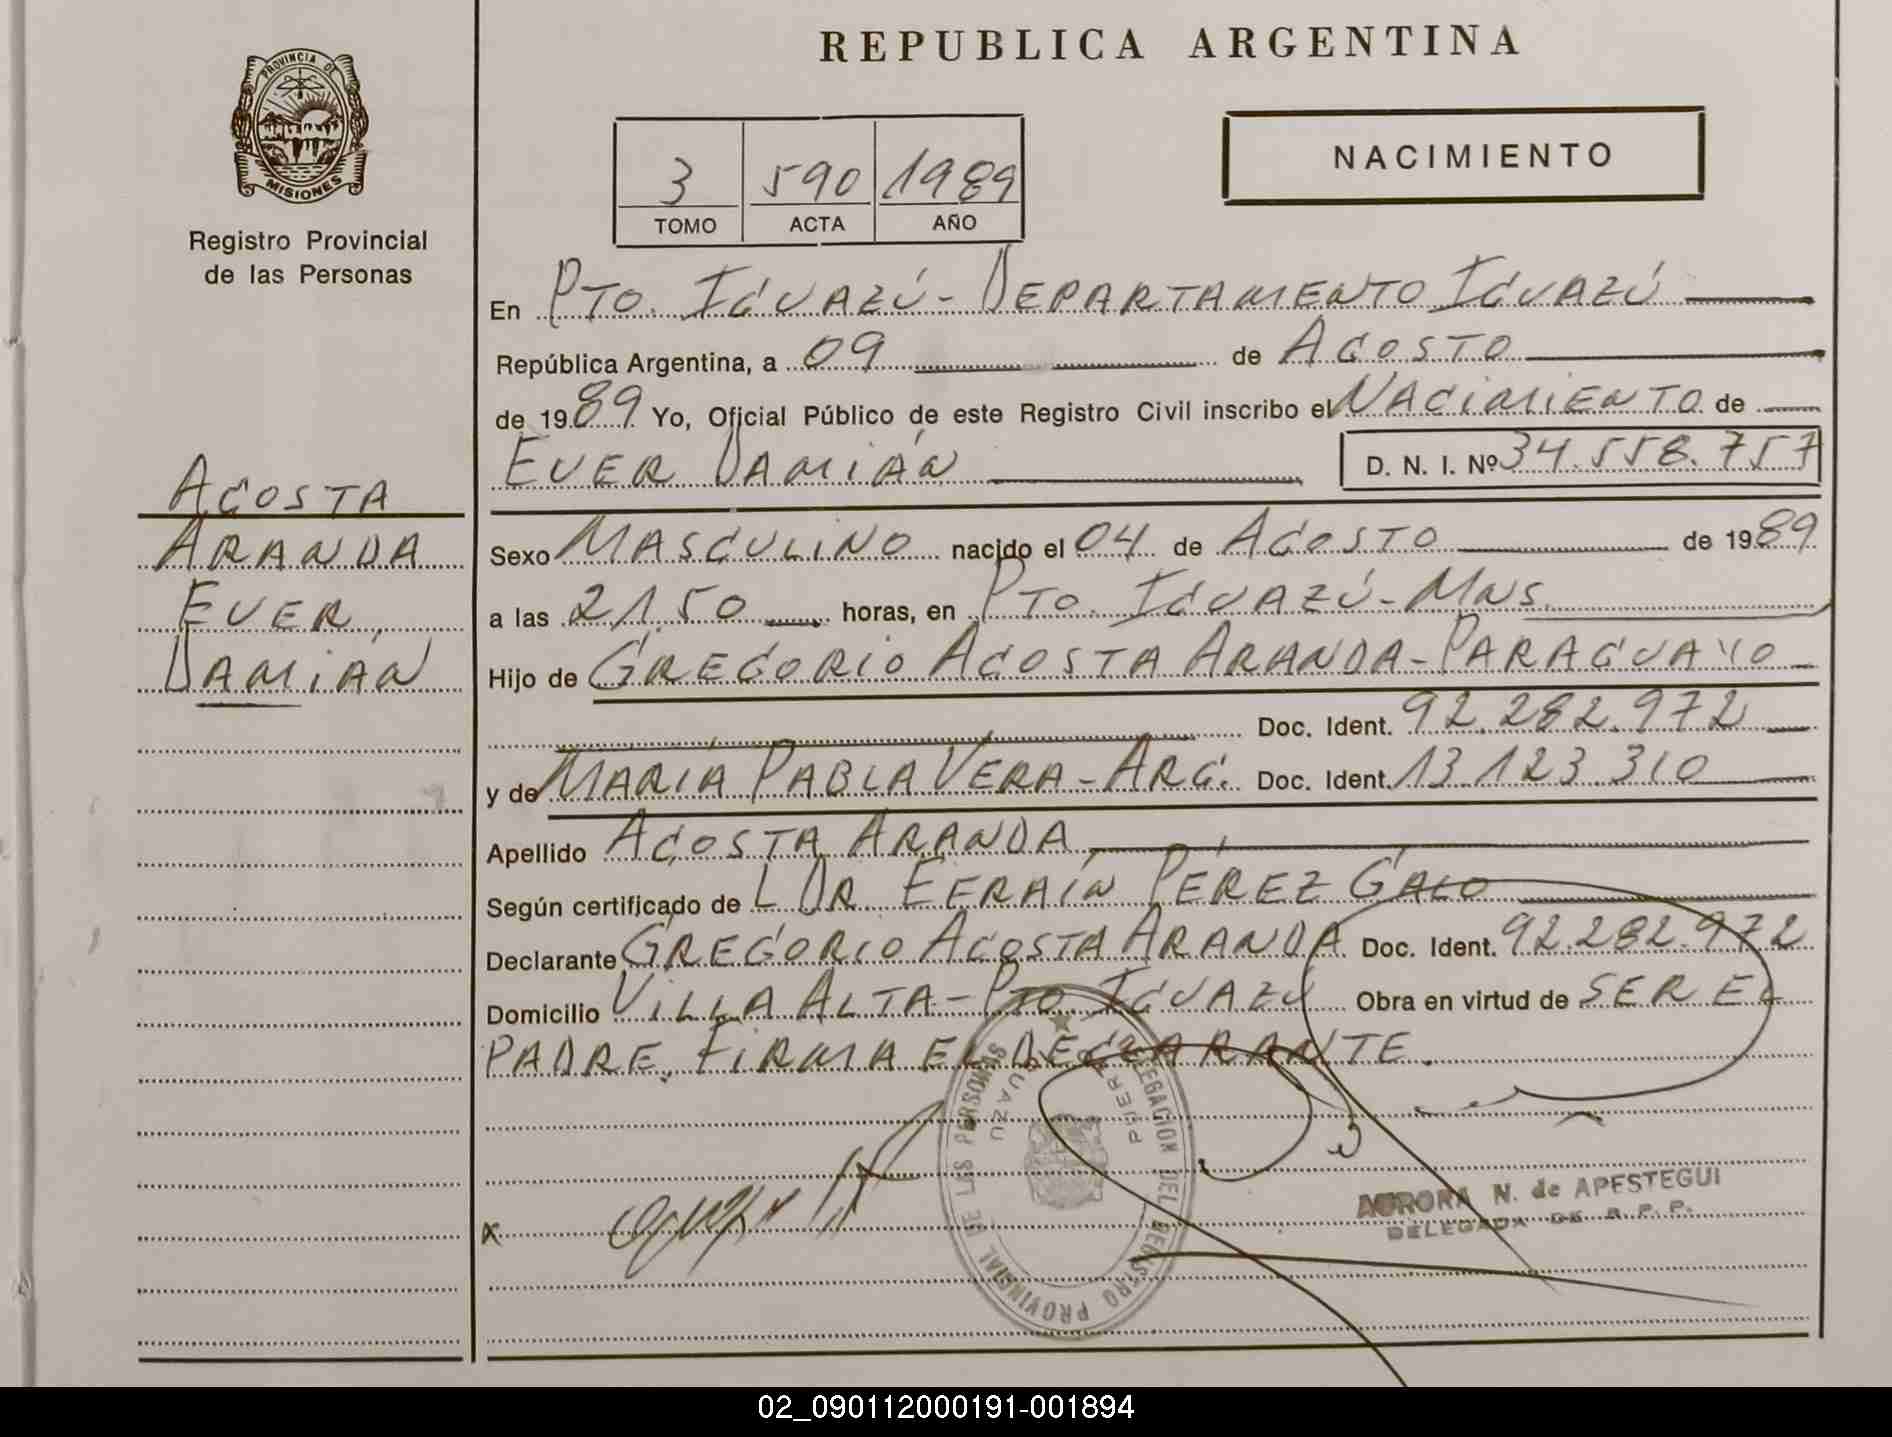 PROVINCIA DE
MISIONES
Registro Provincial
de las Personas
ACOSTA
ARANDA
EVER,
DAMIÁN
REPUBLICA ARGENTINA
3 590 1989
TOMO ACTA AÑO
NACIMIENTO
En PTO. IGUAZÚ - DEPARTAMENTO IGUAZÚ
República Argentina, a 09 de AGOSTO
de 1989 Yo, Oficial Público de este Registro Civil inscribo el NACIMIENTO de
EVER DAMIÁN D. N. I. Nº 34.558.757
Sexo MASCULINO nacido el 04 de AGOSTO de 1989
a las 21.50 horas, en PTO. IGUAZÚ - MNS.
Hijo de GREGORIO ACOSTA ARANDA - PARAGUAYO
Doc. Ident. 92.282.972
y de MARÍA PABLA VERA - ARG. Doc. Ident. 13.123.310
Apellido ACOSTA ARANDA,
Según certificado de L DR. EFRAÍN PÉREZ GALO
Declarante GREGORIO ACOSTA ARANDA Doc. Ident. 92.282.972
Domicilio VILLA ALTA - PTO IGUAZÚ Obra en virtud de SER EL
PADRE. FIRMA EL DECLARANTE.
DELEGACION DEL REGISTRO PROVINCIAL DE LAS PERSONAS
PUERTO IGUAZU
x
AURORA N. de APESTEGUI
DELEGADA DE R. P. P.
02_090112000191-001894